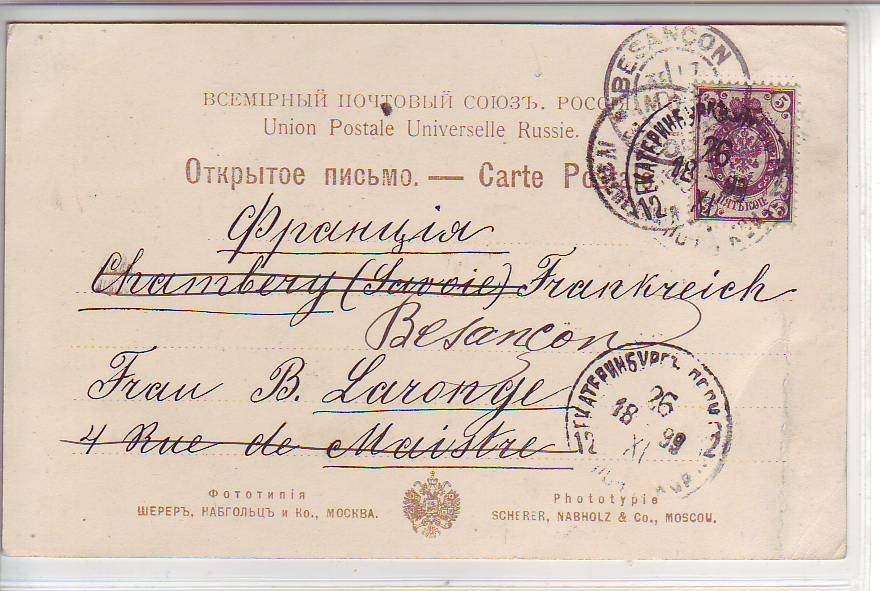 BESANÇON
ВСЕМІРНЫЙ ПОЧТОВЫЙ СОЮЗЪ. РОССІЯ
5
Union Postale Universelle Russie.
ЕКАТЕРИНБУРГЪ
26
18 99
XI
12
Открытое письмо. — Carte Postale
ПЯТЬ КОП
Франція
Chambery (Savoie) Frankreich
Besançon
Frau B. Laronge
4 Rue de Maistre
ЕКАТЕРИНБУРГЪ
26
18 99
XI
12 2
Фототипія
ШЕРЕРЪ, НАБГОЛЬЦЪ и Ко., МОСКВА.
Phototypie
SCHERER, NABHOLZ & Co., MOSCOW.